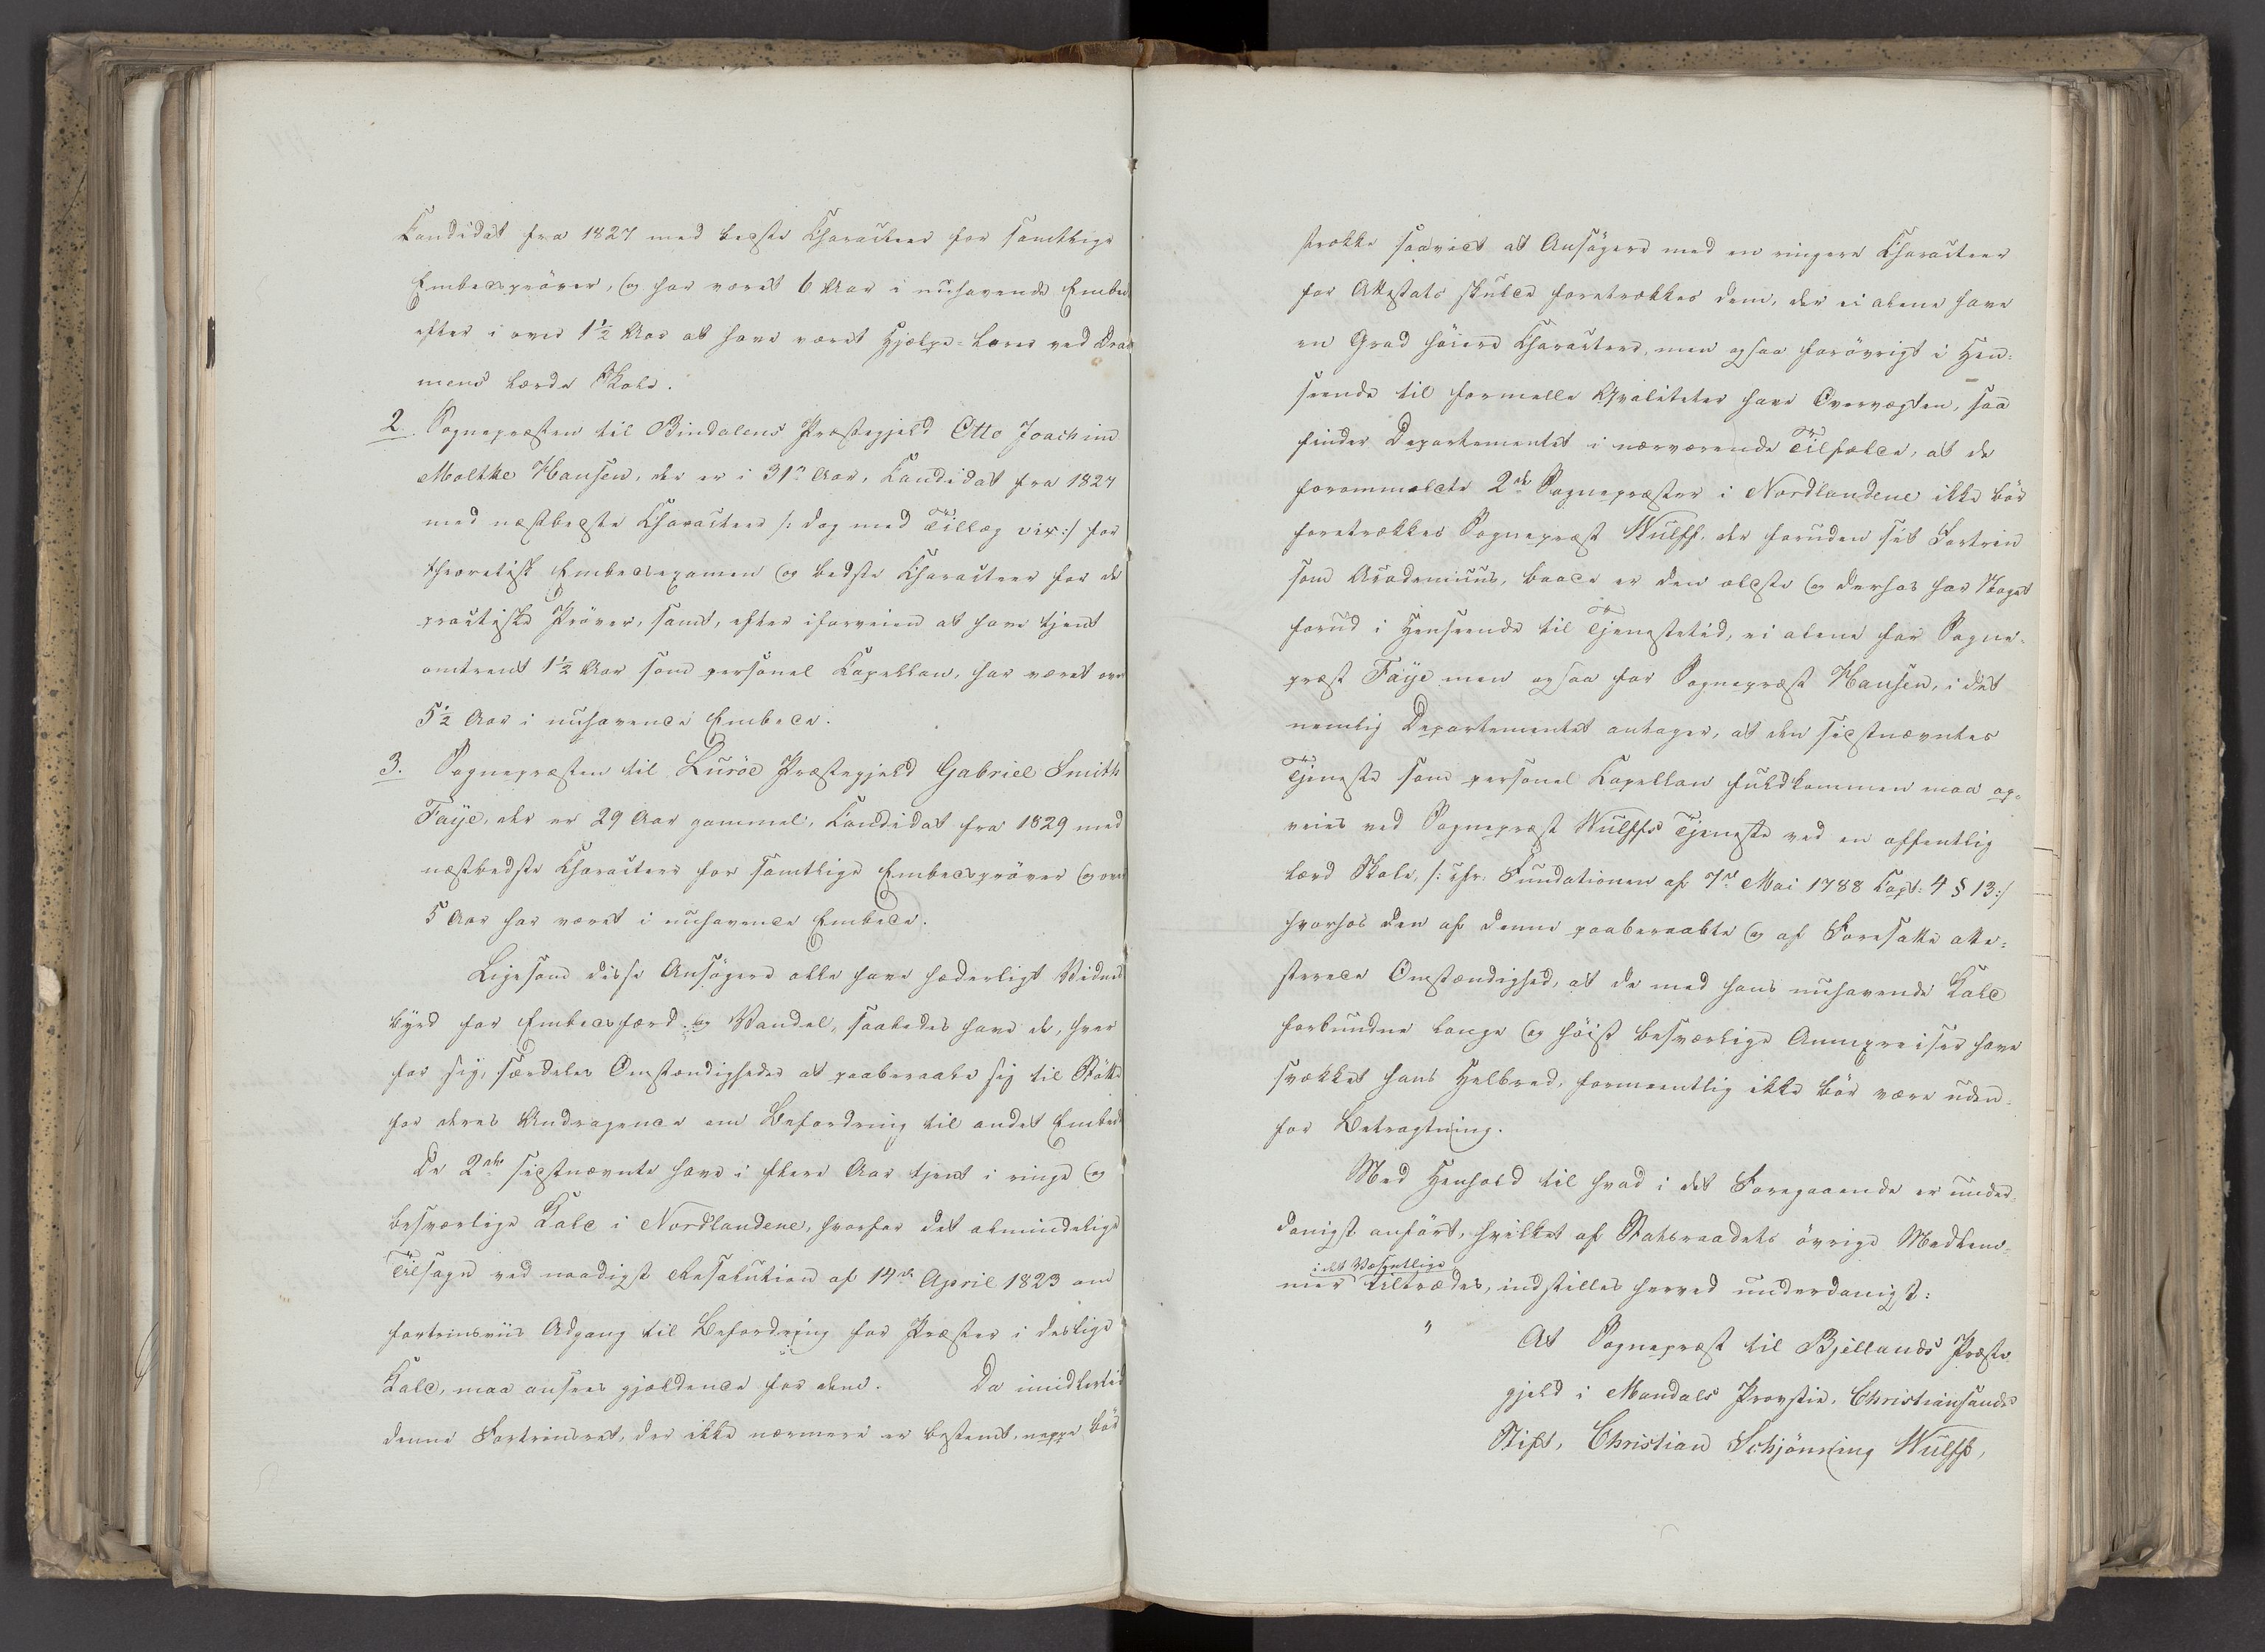 Candidat fra 1827 med bedste Characteer for samtlige
Embedsprøver, og har været 6 Aar i nuhavende Embed
efter i over 1½ Aar at have været Hjælpe-Lærer ved Dram
mens lærde Skole.
2. Sognepræsten til Bindalens Præstegjeld Otto Joachim
Moltke Hansen, der er i 31te Aar, Candidat fra 1827
med næstbedste Characteer /: dog med Tillæg vix :/ for
theoretisk Embedsexamen og bedste Characteer for de
practiske Prøver, samt, efter iforveien at have tjent
omtrent 1½ Aar som personel Capellan, har været over
5½ Aar i nuhavende Embede.
3. Sognepræsten til Lurøe Præstegjeld Gabriel Smith
Faye, der er 29 Aar gammel, Candidat fra 1829 med
næstbedste Characteer for samtlige Embedsprøver og over
5 Aar har været i nuhavende Embede.
Ligesom disse Ansøgere alle have hæderligt Vidnes
byrd for Embedsfærd og Vandel, saaledes have de, hver
for sig, særdeles Omstændigheder at paaberaabe sig til Støtte
for deres Andragende om Befordring til andet Embede
De 2de sidstnævnte have i flere Aar tjent i ringe og
besværlige Kald i Nordlandene, hvorfor det almindelige
Tilsagn ved naadigst Resolution af 14de April 1823 om
fortrinsviis Adgang til Befordring for Præster i deslige
Kald, maa ansees gjældende for dem. Da imidlertid
denne Fortrinsret, der ikke nærmere er bestemt, neppe bør
strække saavidt at Ansøgere med en ringere Characteer
for Attestats skulde foretrækkes dem, der ei alene have
en Grad høiere Characteer, men ogsaa forøvrigt i Hen-
seende til formelle Qvaliteter have Overvægten, saa
finder Departementet i nærværende Tilfælde, at de
forommeldte 2de Sognepræster i Nordlandene ikke bør
foretrækkes Sognepræst Wulff, der foruden sit Fortrin
som Academicus, baade er den ældste og derhos har Noget
forud i Henseende til Tjenestetid, ei alene for Sogne-
præst Faye men ogsaa for Sognepræst Hansen, i det
nemlig Departementet antager, at den sidstnævntes
Tjeneste som personel Capellan fuldkommen maa op-
veies ved Sognepræst Wulffs Tjeneste ved en offentlig
lærd Skole, /: cfr. Fundationen af 7de Mai 1788 Capt. 4 § 13 :/
hvorhos den af denne paaberaabte og af Foresatte atte-
sterede Omstændighed, at de med hans nuhavende Kald
forbundne lange og høist besværlige Annexreiser have
svækket hans Helbred, formeentlig ikke bør være uden-
for Betragtning.
Med Henhold til hvad i det Foregaaende er under-
danigst anført, hvilket af Statsraadets øvrige Medlem-
i det Væsentlige
mer tiltrædes, indstilles herved underdanigst:
" At Sognepræst til Bjellands Præste
gjeld i Mandals Provstie, Christiansands
Stift, Christian Schjønning Wulff,